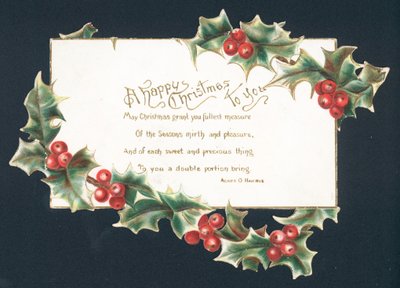 A Happy Christmas To You
May Christmas grant you fullest measure
Of the Seasons mirth and pleasure,
And of each sweet and precious thing,
To you a double portion bring.